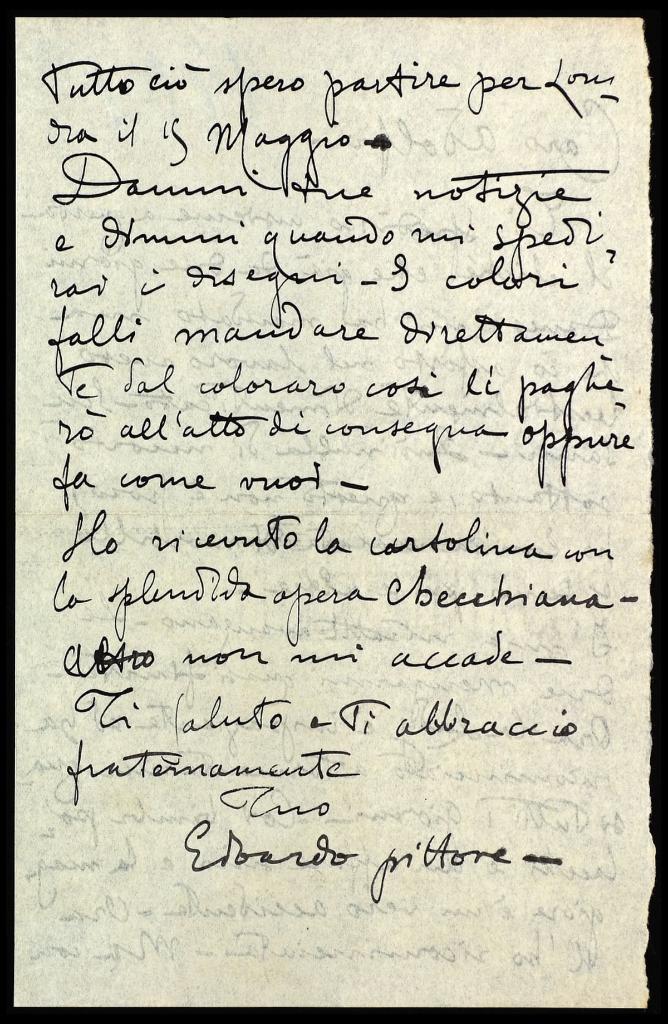 Tutto ciò spero partire per Lon-
dra il 15 Maggio -
Dammi tue notizie
e dimmi quando mi spedi-
rai i disegni - I colori
falli mandare direttamen
te dal coloraro così li paghe
rò all'atto di consegna oppure
fa come vuoi -
Ho ricevuto la cartolina con
la splendida opera Checchiana -
Altro non mi accade -
Ti saluto e Ti abbraccio
fraternamente
Tuo
Edoardo pittore -